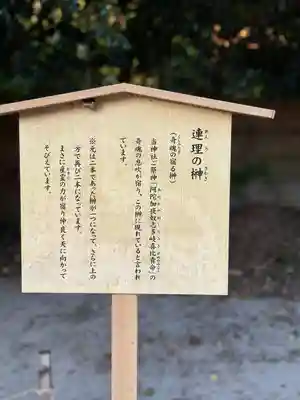 連理の榊
（奇魂の宿る榊）
当神社ご祭神「阿陀加夜奴志多岐喜比賣命」の
奇魂の息吹が宿り、この榊に現れていると言われ
ています。
※元は二本であった榊が一つになって、さらに上の
方で再び二本になっています。
まさに産霊の力が宿り仲良く天に向かって
そびえています。